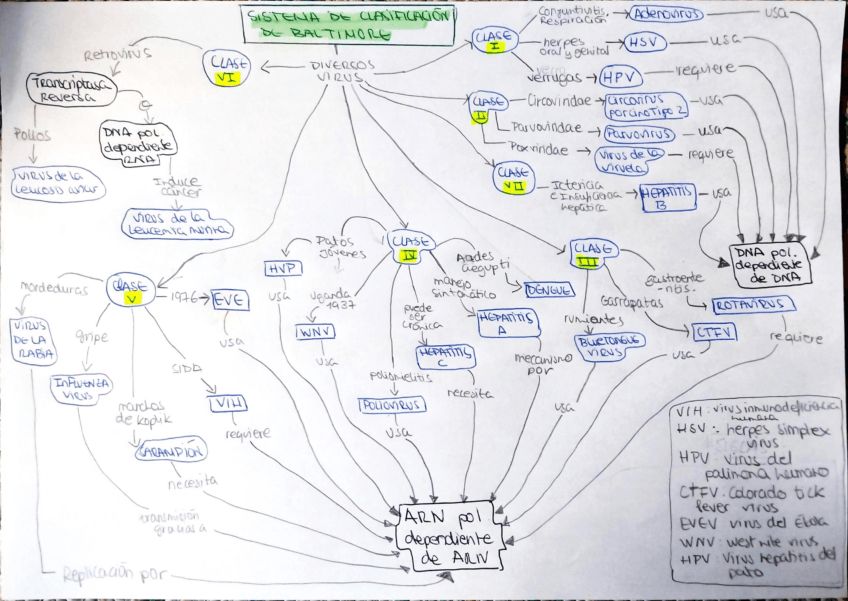 SISTEMA DE CLASIFICACIÓN
DE BALTIMORE
DIVERSOS
VIRUS
CLASE
I
Conjuntivitis.
Respiración
Adenovirus
usa
herpes
oral y genital
HSV
usa
verrugas
HPV
requiere
CLASE
II
Circoviridae
Circovirus
porcino Tipo 2
usa
Parvoviridae
Parvovirus
usa
Poxviridae
Virus de la
viruela
requiere
CLASE
VII
Ictericia
e Insuficiencia
hepática
HEPATITIS
B
usa
DNA pol.
dependiente
de DNA
CLASE
VI
Retrovirus
Transcriptasa
Reversa
Pollos
VIRUS de la
Leucosis aviar
DNA pol
dependiente
RNA
Induce
cáncer
VIRUS de la
Leucemia murina
CLASE
V
mordeduras
VIRUS
DE LA
RABIA
Replicación por
gripe
INFLUENZA
VIRUS
transmisión
gracias a
manchas
de koplik
SARAMPIÓN
necesita
SIDA
VIH
requiere
1976
EVE
usa
CLASE
IV
Patos
jóvenes
HVP
usa
Uganda
1937
WNV
usa
poliomielitis
POLIOVIRUS
usa
puede
ser
crónica
HEPATITIS
C
necesita
manejo
sintomático
HEPATITIS
A
Aedes
aegypti
DENGUE
mecanismo
por
CLASE
III
rumiantes
BLUETONGUE
VIRUS
usa
Garrapatas
CTFV
usa
gastroente
-ritis.
ROTAVIRUS
requiere
ARN pol
dependiente
de ARN
VIH: virus inmunodeficiencia
humana
HSV: herpes simplex
virus
HPV: virus del
palimona humano
CTFV: Colorado tick
fever virus
EVEV virus del Ebola
WNV: west nile virus
HPV: Virus hepatitis del
pato